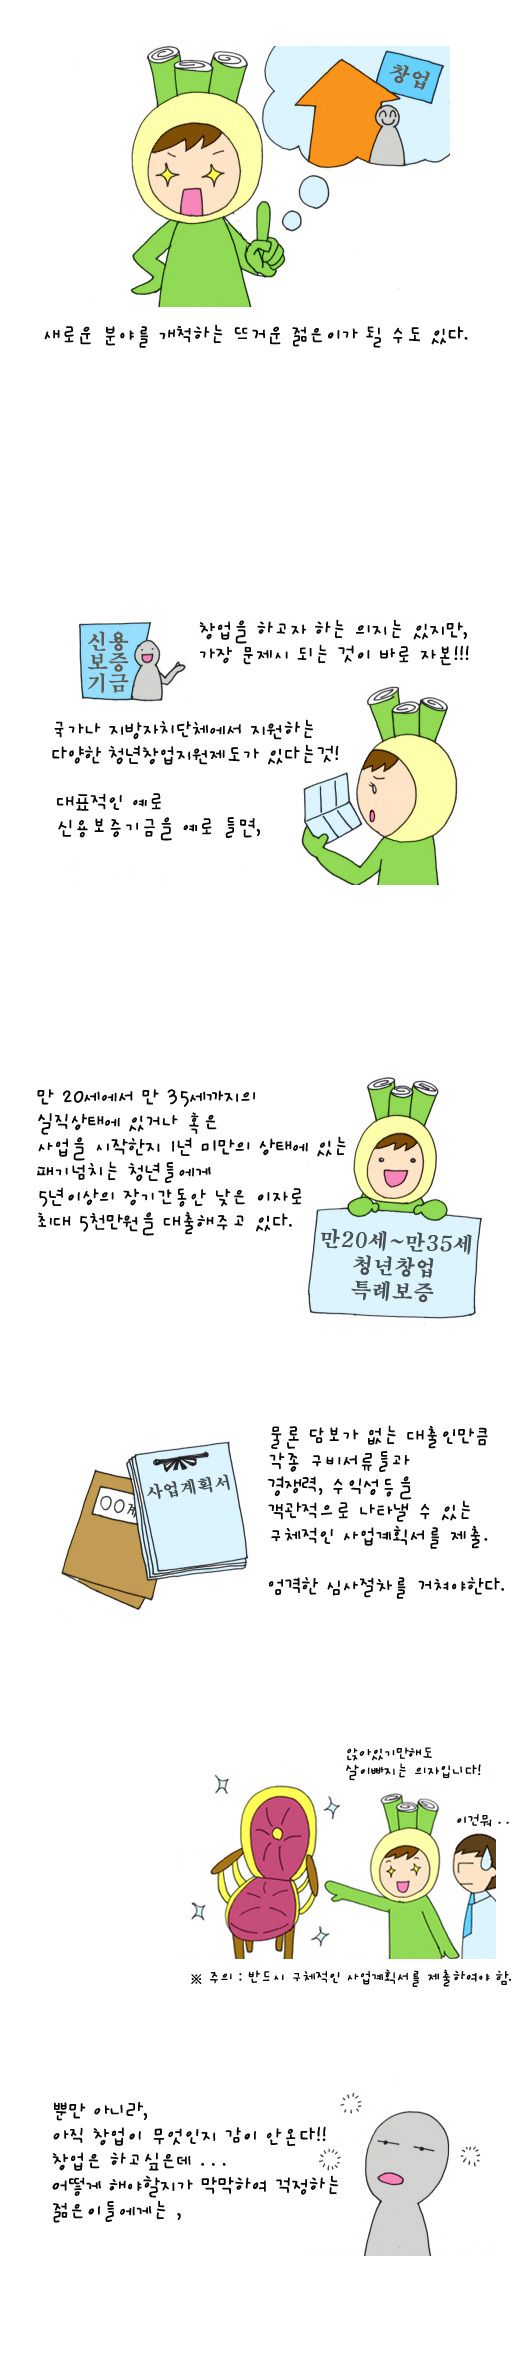 창업
새로운 분야를 개척하는 뜨거운 젊은이가 될 수도 있다.
신용
보증
기금
창업을 하고자 하는 의지는 있지만,
가장 문제시 되는 것이 바로 자본!!!
국가나 지방자치단체에서 지원하는
다양한 청년창업지원제도가 있다는것!
대표적인 예로
신용보증기금을 예로 들면,
만 20세에서 만 35세까지의
실직상태에 있거나 혹은
사업을 시작한지 1년 미만의 상태에 있는
패기넘치는 청년들에게
5년이상의 장기간동안 낮은 이자로
최대 5천만원을 대출해주고 있다.
만20세~만35세
청년창업
특례보증
물론 담보가 없는 대출인만큼
각종 구비서류들과
경쟁력, 수익성등을
객관적으로 나타낼 수 있는
구체적인 사업계획서를 제출.
엄격한 심사절차를 거쳐야한다.
사업계획서
○○계
앉아있기만해도
살이빠지는 의자입니다!
이건뭐 . .
※ 주의 : 반드시 구체적인 사업계획서를 제출하여야 함.
뿐만 아니라,
아직 창업이 무엇인지 감이 안온다!!
창업은 하고싶은데 ...
어떻게 해야할지가 막막하여 걱정하는
젊은이들에게는 ,